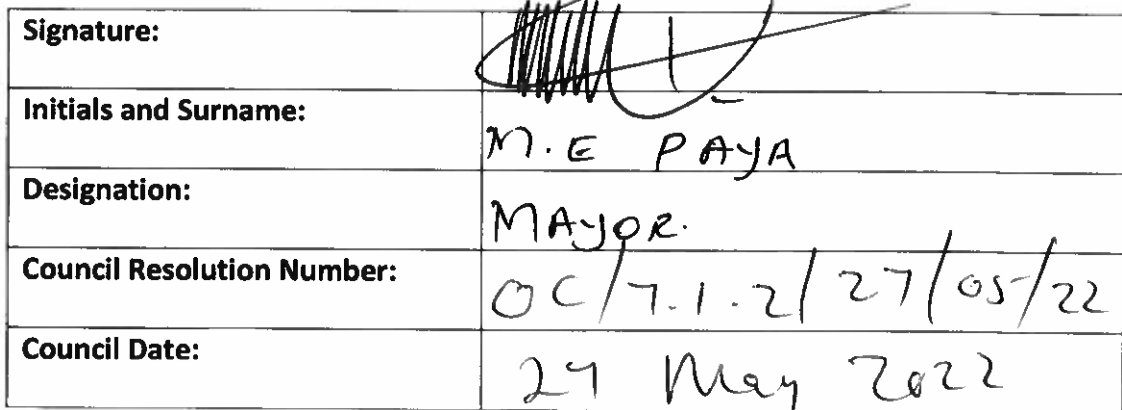 Signature:
Initials and Surname: M.E PAYA
Designation: MAYOR.
Council Resolution Number: OC/7.1.2/27/05/22
Council Date: 27 May 2022